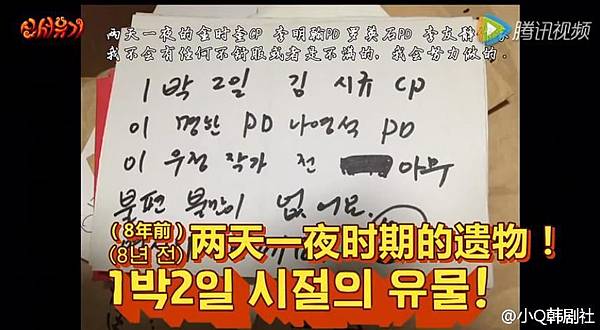 신서유기
腾讯视频
两天一夜的金时奎CP 李明翰PD 罗英石PD 李友静
我不会有任何不舒服或者是不满的，我会努力做的．
1박 2일 김 시규 CP
이 명한 PD 나영석 PD
이 우정 작가 전 아무
불편 불만이 없어요.
(8年前) 两天一夜时期的遗物！
(8년 전)
1박2일 시절의 유물!
@小Q韩剧社